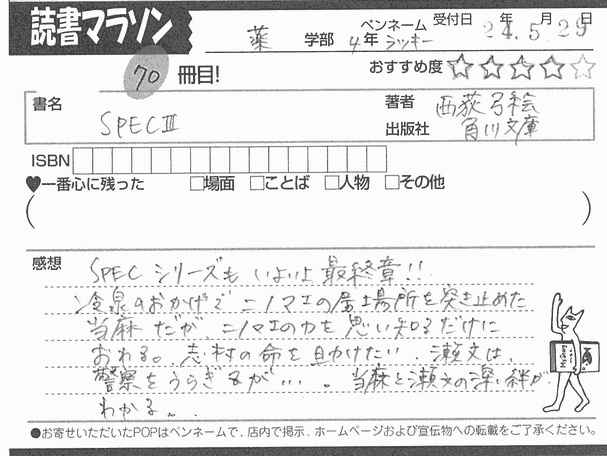 読書マラソン
薬 学部 4年 ペンネーム ラッキー 受付日 24年5月29日
70 冊目! おすすめ度 ☆☆☆☆☆
書名 SPECⅢ
著者 西荻弓絵
出版社 角川文庫
ISBN
♥一番心に残った □場面 □ことば □人物 □その他
( )
感想 SPECシリーズもいよいよ最終章!!
冷泉のおかげでニノマエの居場所を突き止めた
当麻だが、ニノマエの力を思い知るだけに
おわる。志村の命を助けたい、瀬文は、
警察をうらぎるが…。当麻と瀬文の深い絆が
わかる。
●お寄せいただいたPOPはペンネームで、店内で掲示、ホームページおよび宣伝物への転載をご了承ください。